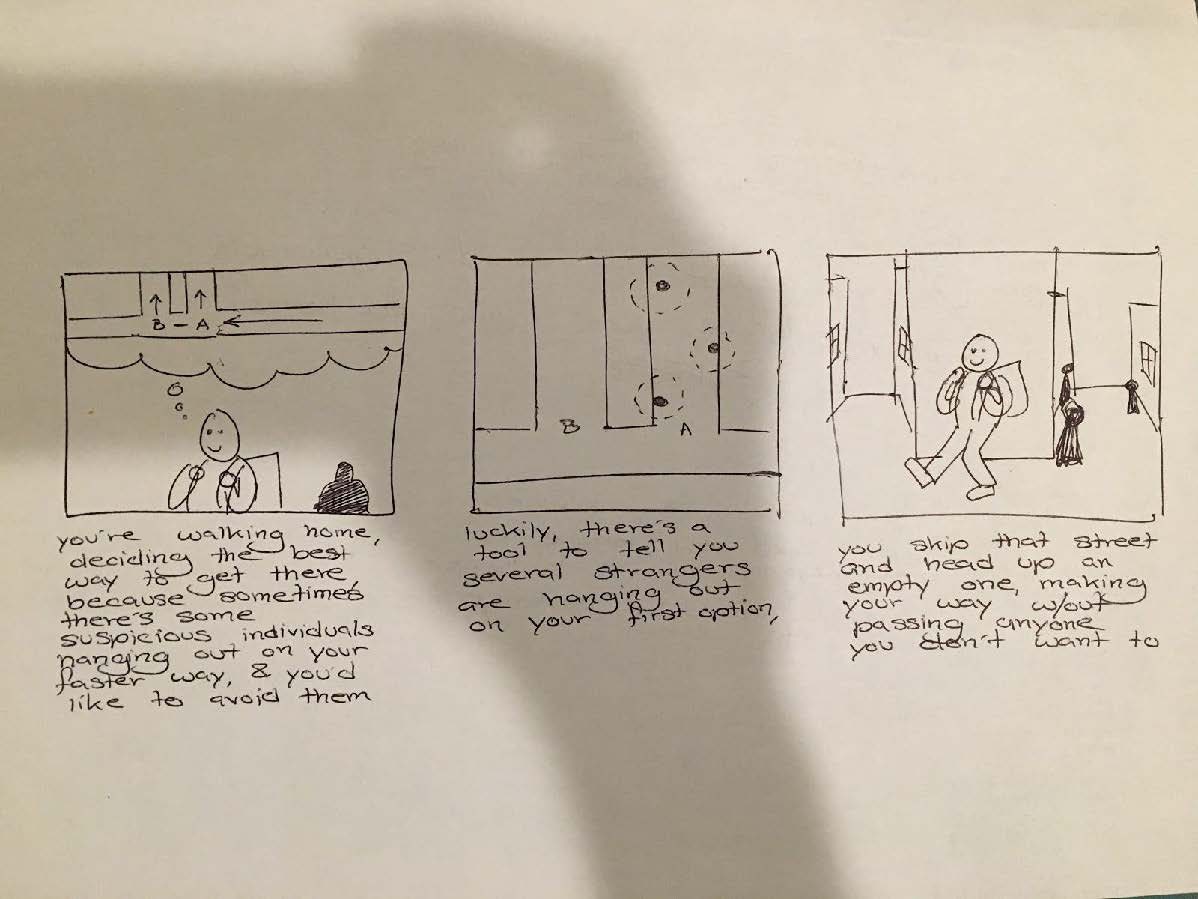 B – A
you're walking home,
deciding the best
way to get there,
because sometimes
there's some
suspicious individuals
hanging out on your
faster way, & you'd
like to avoid them
B A
luckily, there's a
tool to tell you
several strangers
are hanging out
on your first option,
you skip that street
and head up an
empty one, making
your way w/out
passing anyone
you don't want to